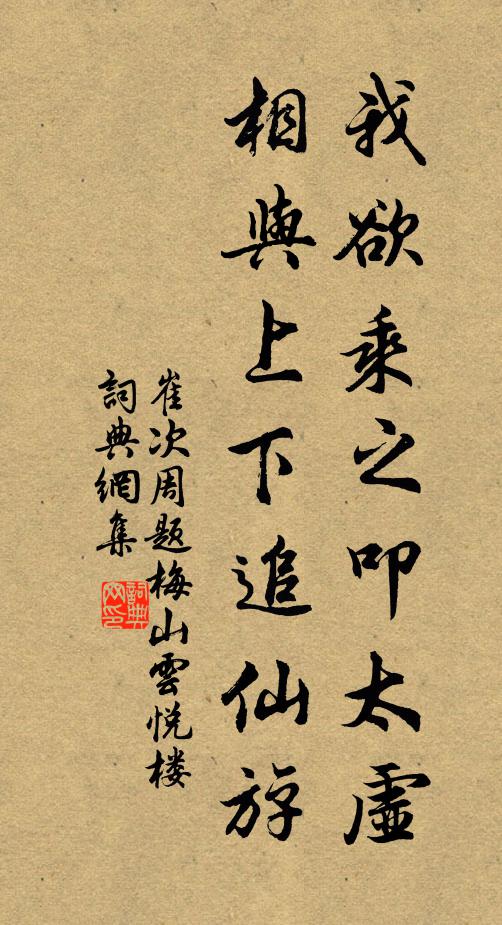 我欲乘之叩太虛
相與上下追仙游
崔次周题梅山雲悦楼
詞典網集
詞典网印